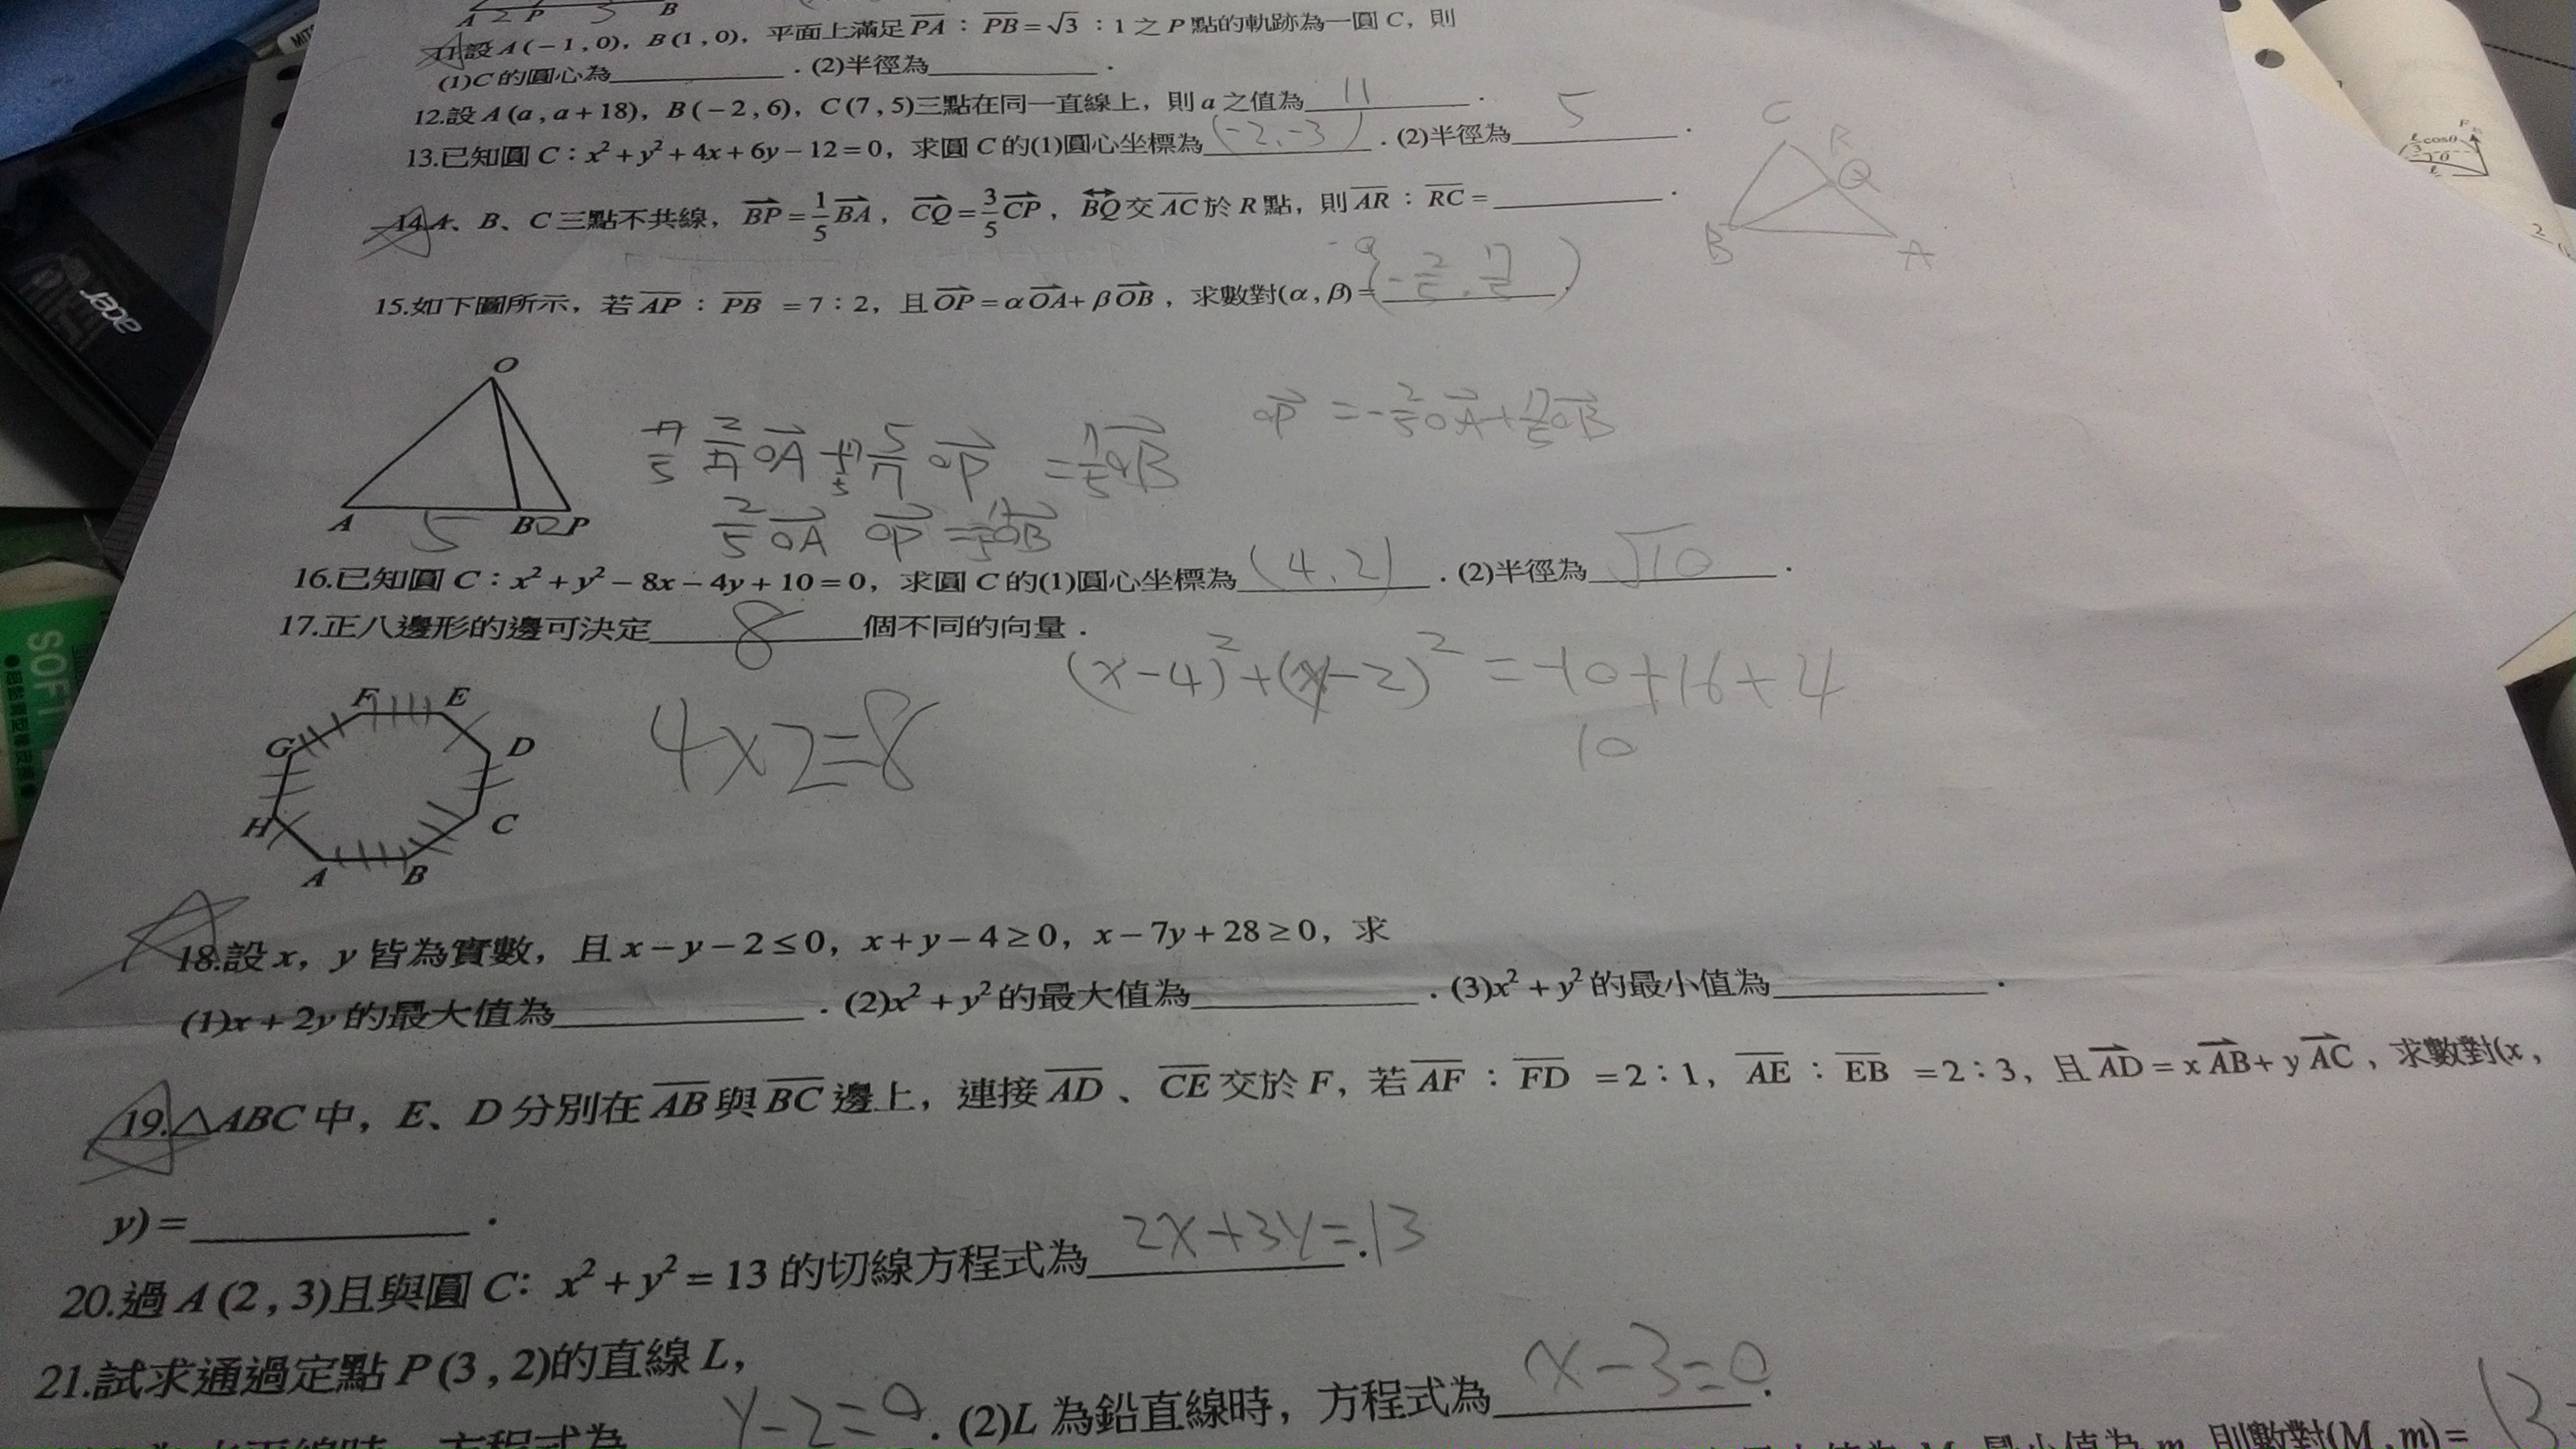 A 2 P 3 B
11.設 A(-1,0), B(1,0), 平面上滿足 PA : PB = √3 : 1 之 P 點的軌跡為一圓 C, 則
(1)C 的圓心為________. (2)半徑為________.
12.設 A(a, a+18), B(-2, 6), C(7, 5)三點在同一直線上, 則 a 之值為 11 .
13.已知圓 C：x²+y²+4x+6y-12=0, 求圓 C 的(1)圓心坐標為 (-2,-3) . (2)半徑為 5 .
C R Q B A
14.A、B、C 三點不共線, BP = 1/5 BA, CQ = 3/5 CP, BQ 交 AC 於 R 點, 則 AR : RC = ________.
15.如下圖所示, 若 AP : PB = 7 : 2, 且 OP = αOA + βOB, 求數對(α, β) = (-2/5, 7/5) .
O
A 5 B 2 P
2/7 OA + 5/7 OP = 7/5 OB
OP = -2/5 OA + 7/5 OB
2/5 OA OP = 7/5 OB
16.已知圓 C：x²+y²-8x-4y+10=0, 求圓 C 的(1)圓心坐標為 (4,2) . (2)半徑為 √10 .
17.正八邊形的邊可決定 8 個不同的向量.
(x-4)²+(y-2)² = -10+16+4
10
4×2=8
F E
G D
H C
A B
18.設 x, y 皆為實數, 且 x-y-2≤0, x+y-4≥0, x-7y+28≥0, 求
(1)x+2y 的最大值為________. (2)x²+y² 的最大值為________. (3)x²+y² 的最小值為________.
19.△ABC 中, E、D 分別在 AB 與 BC 邊上, 連接 AD、CE 交於 F, 若 AF : FD = 2 : 1, AE : EB = 2 : 3, 且 AD = xAB + yAC, 求數對(x,
y) = ________.
20.過 A(2, 3)且與圓 C: x²+y²=13 的切線方程式為 2x+3y=13 .
21.試求通過定點 P(3, 2)的直線 L,
方程式為 y-2=0 . (2)L 為鉛直線時, 方程式為 x-3=0 .
則數對(M, m)= (3
acer
SOFT